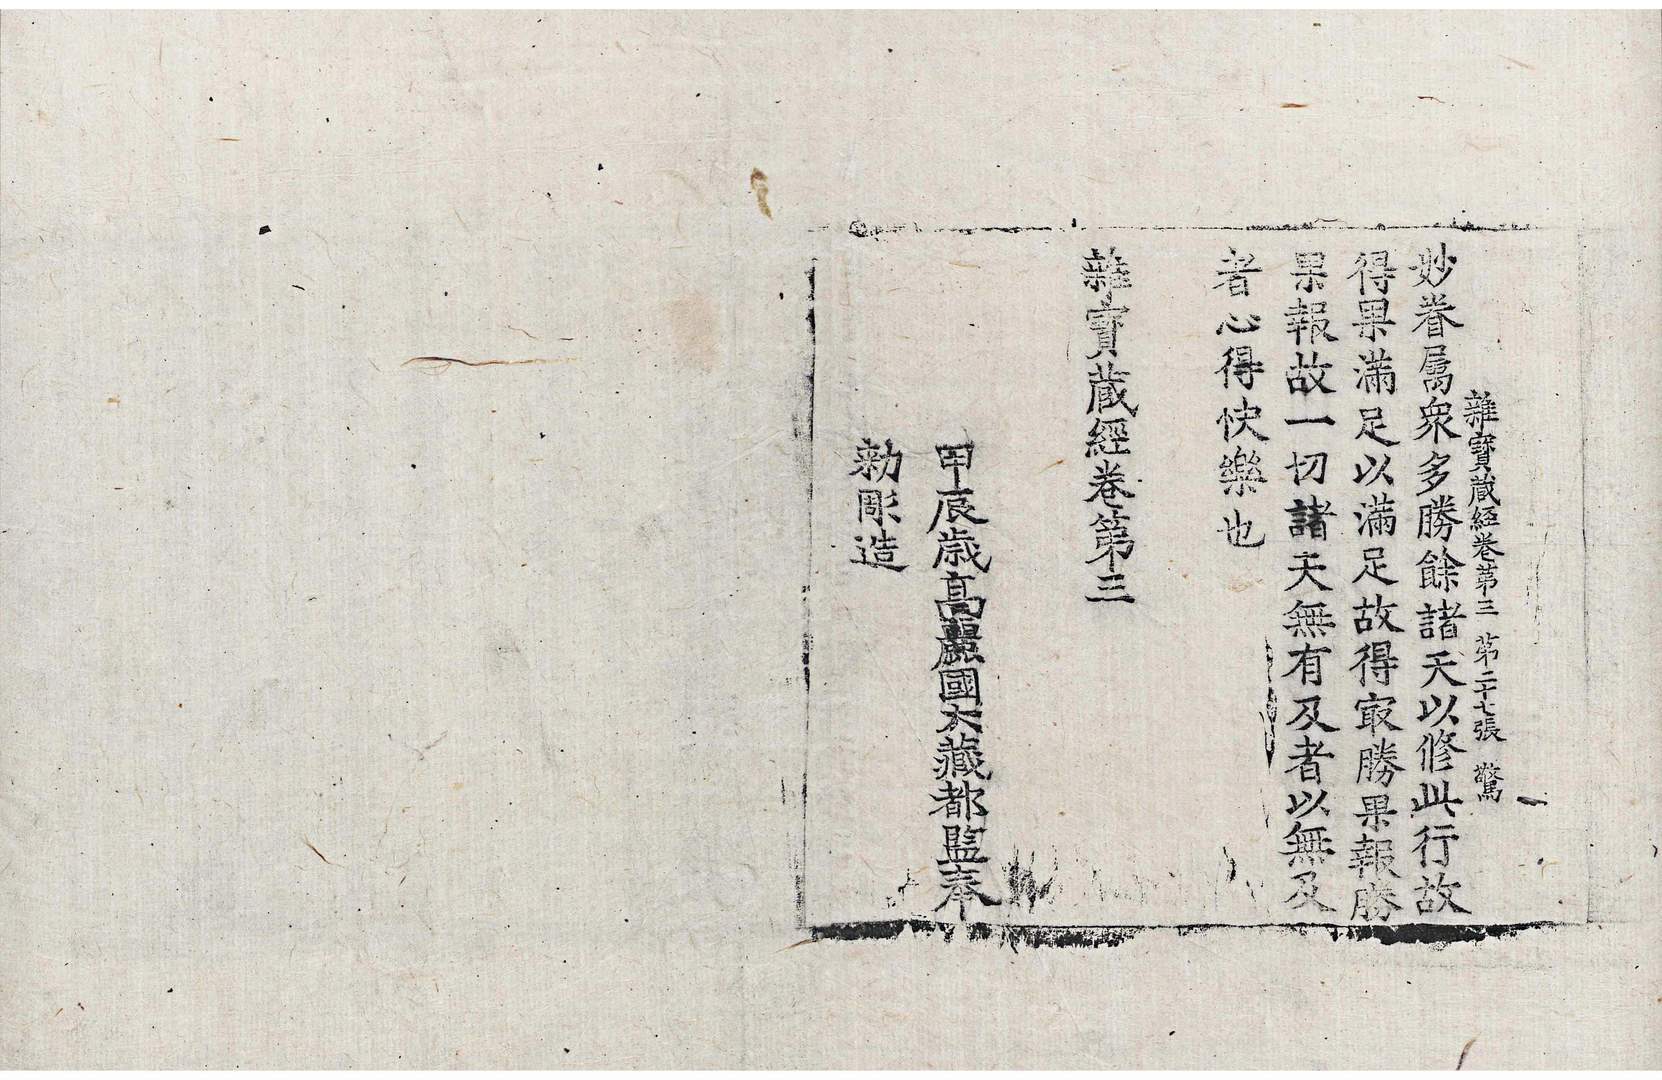 雜寶蔵經卷第三 第二十七張 驚
妙眷属衆多勝餘諸天以修此行故
得果滿足以滿足故得㝡勝果報勝
果報故一切諸天無有及者以無及
者心得快樂也
雜寶蔵經卷第三
甲辰歳高麗國大藏都監奉
勅彫造